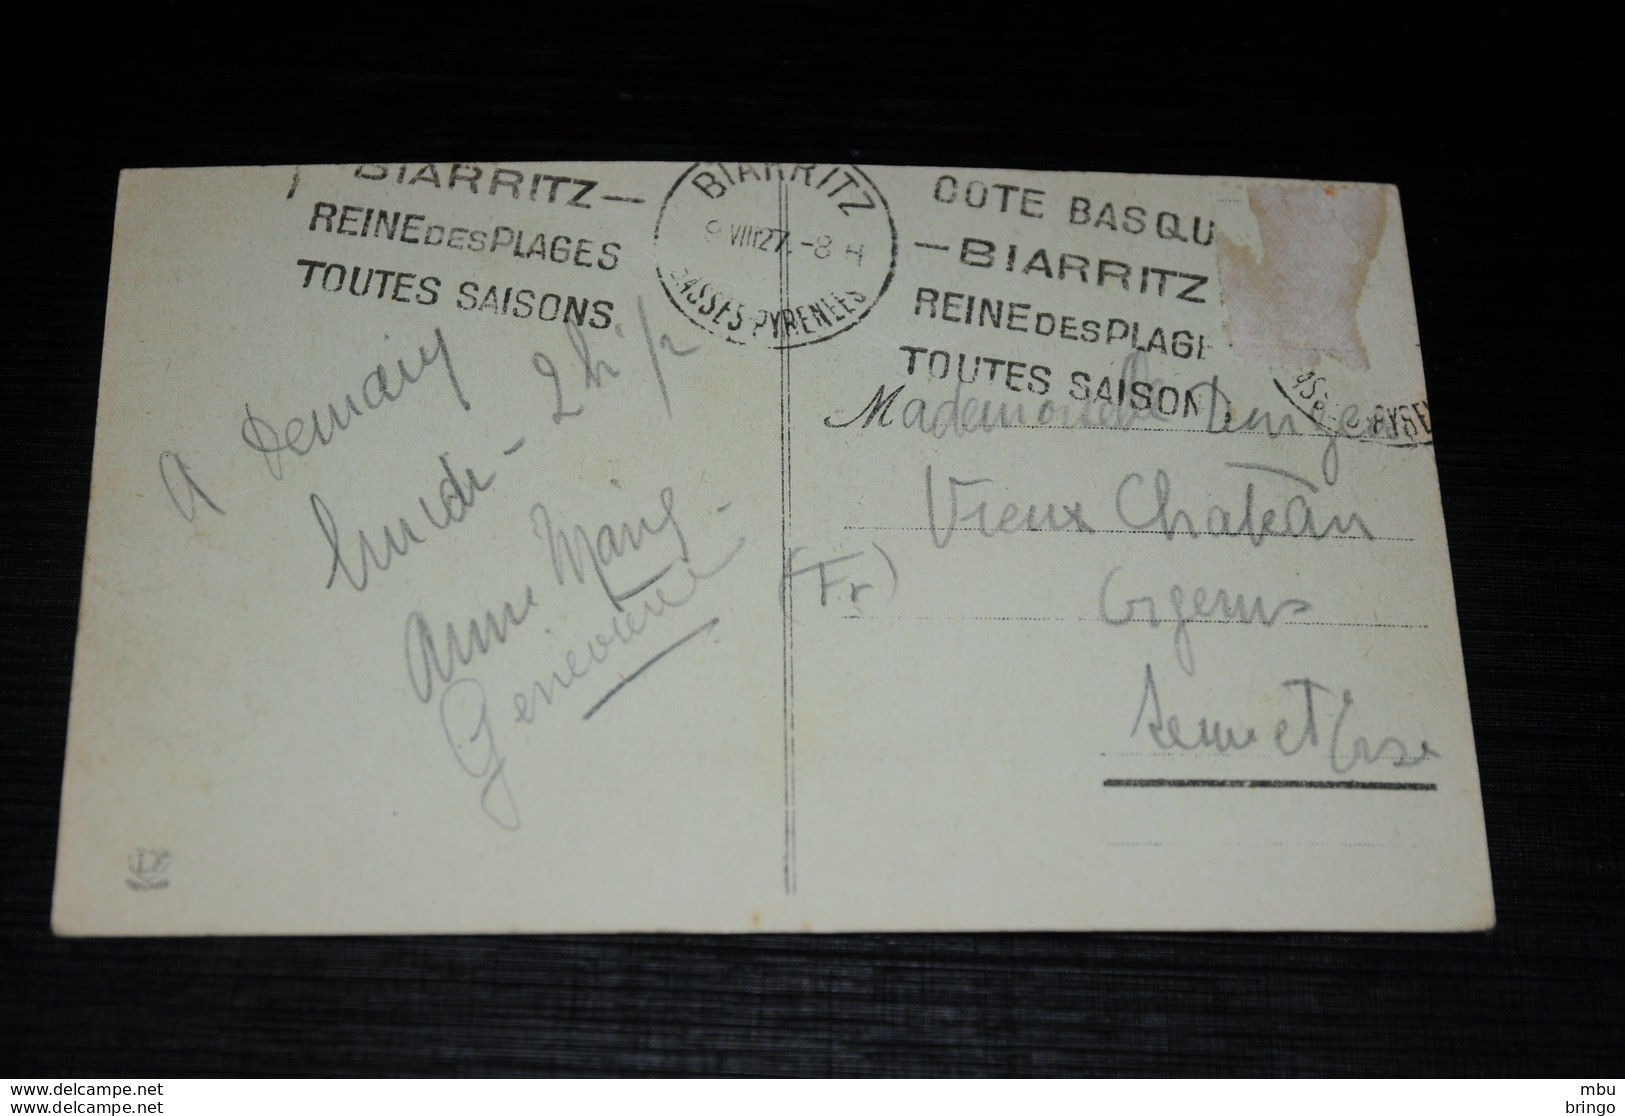 BIARRITZ—
REINE DES PLAGES
TOUTES SAISONS
BIARRITZ
9 VIII 27. -8 H
BASSES-PYRENEES
COTE BASQU
—BIARRITZ
REINE DES PLAGE
TOUTES SAISON
PYREN
A Demain
lundi - 2h 1/2
Anne Marie -
Geneviève
Mademoiselle
Vieux Château
(Fr)
Orgerus
Seine et Oise
mbu
bringo